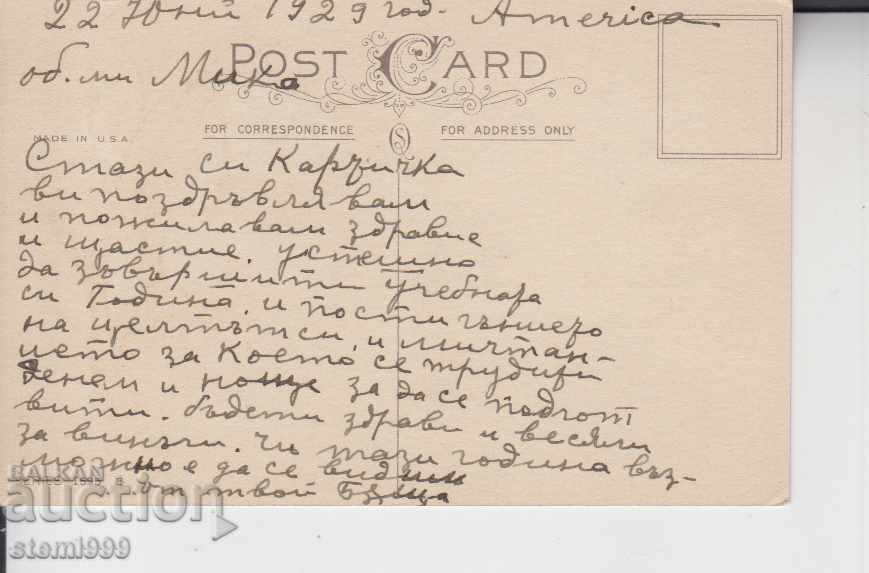 22 Юний 1929 год. America
POST CARD
об. ми Мика
MADE IN U.S.A.
FOR CORRESPONDENCE
FOR ADDRESS ONLY
Стази си Карзичка
ви поздрѣвлявам
и пожилавам здравие
и щастие. успешно
да зъвършити учебната
си Година. и пости гъниего
на целтътси, и мичтан-
ието за Което се трудити
денем и ноще за да се подгот
вити. бъдети здрави и весели
за винъги. чи тази година въз-
можно е да се видим
от твой
SERIES
BALKAN
auction
stemi999